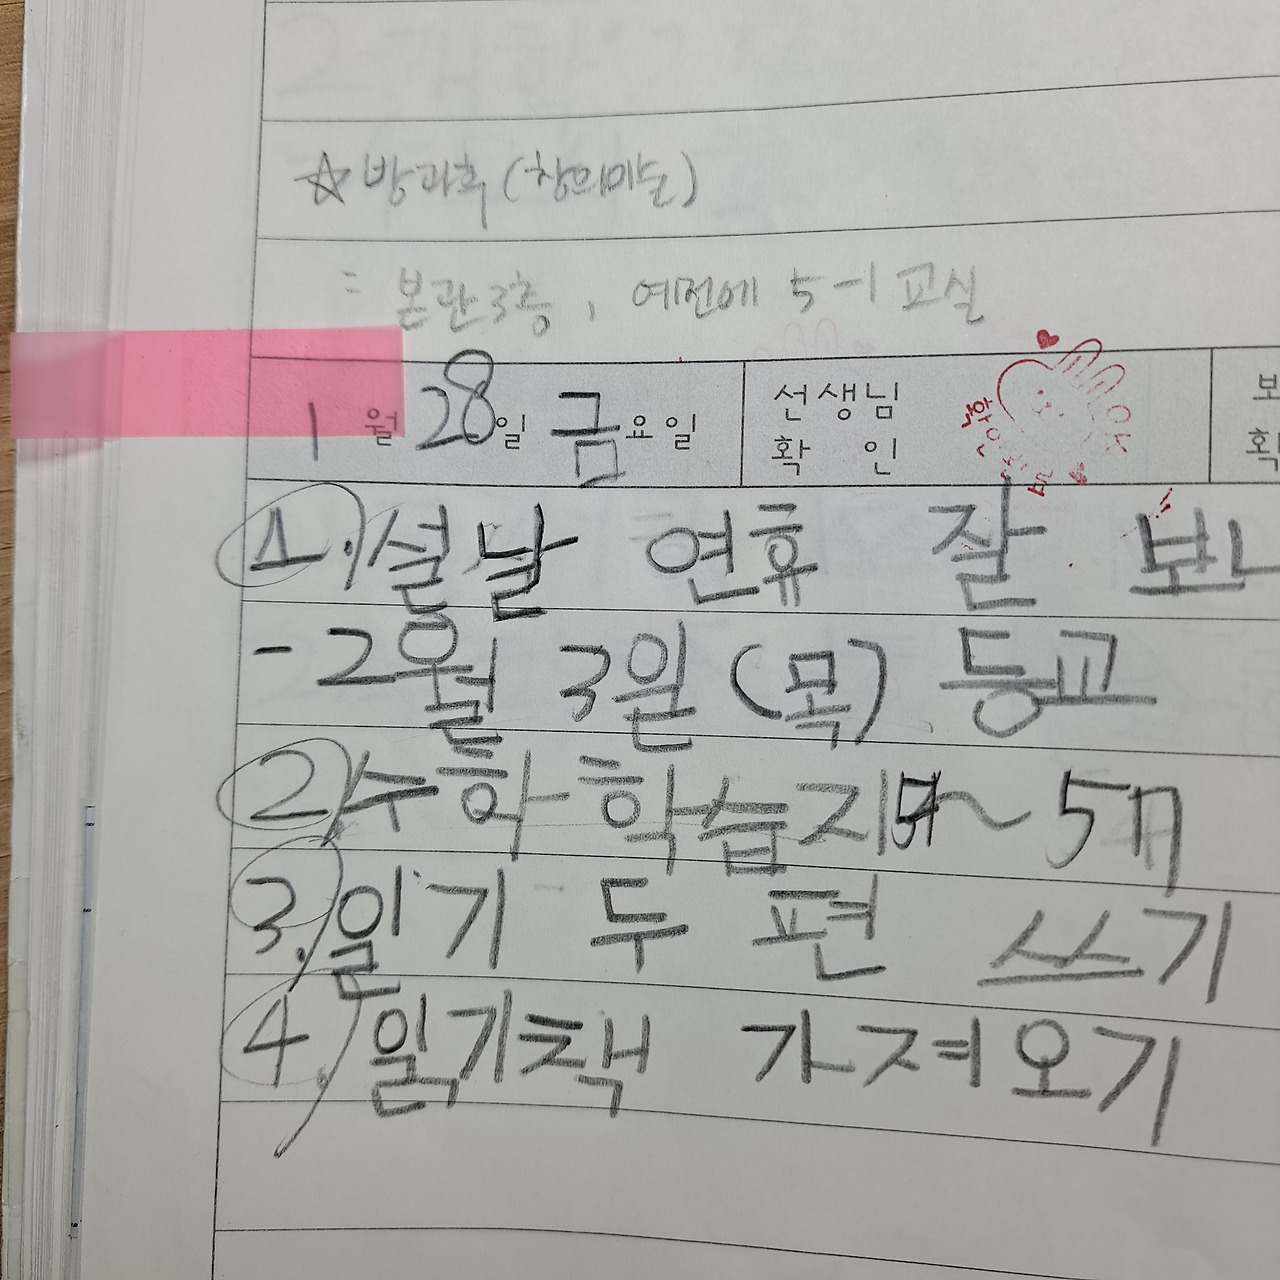 ☆ 방과후 (창의미술)
= 본관3층, 예전에 5-1 교실
1월 28일 금요일 선생님 확인
1. 설날 연휴 잘 보
- 2월 3일 (목) 등교
2. 수학 학습지 ~ 5
3. 일기 두 편 쓰기
4. 읽기책 가져오기